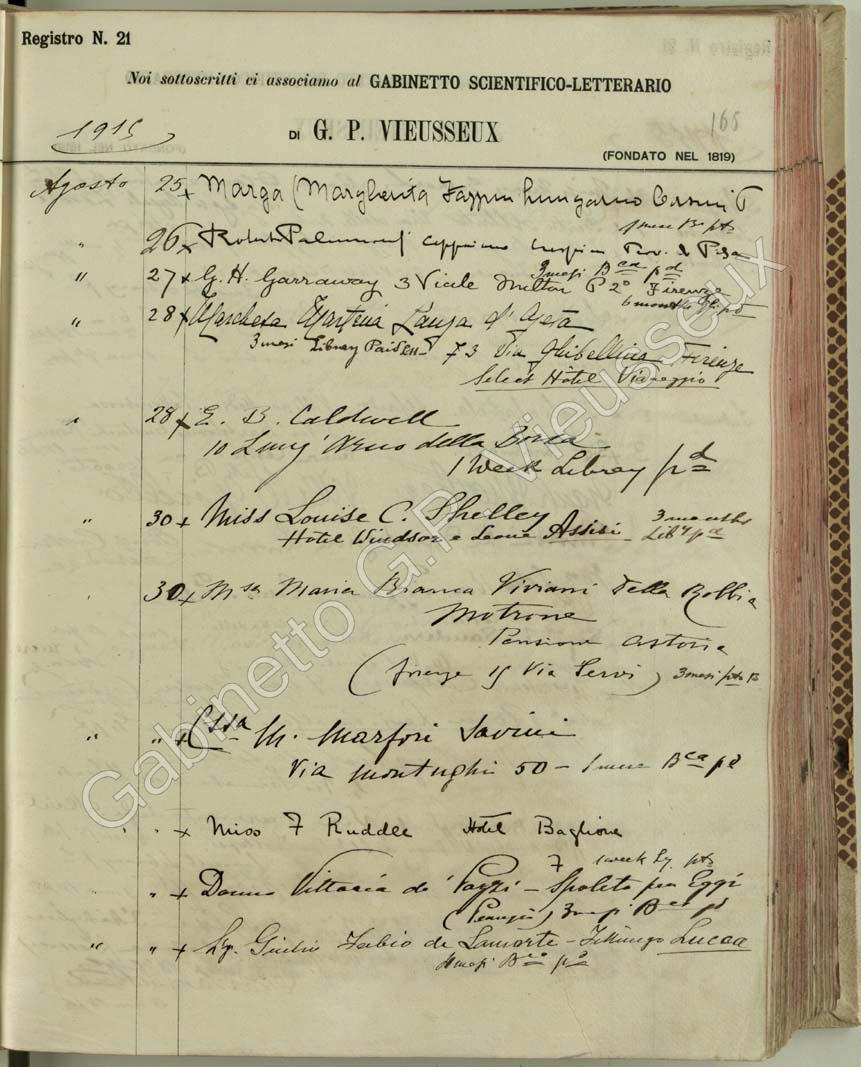 Registro N. 21
Noi sottoscritti ci associamo al GABINETTO SCIENTIFICO-LETTERARIO
165
1915
DI G. P. VIEUSSEUX
(FONDATO NEL 1819)
Agosto 25 x Marga (Margherita Lungarno Corsini 6
1 mese Bca pto
" 26 x Prov. di Pisa
3 mesi Bca pd
" 27 x G. H. Garraway 3 Viale Milton P 2º Firenze
6 months pd
" 28 x Marchesa Lanza d'Ajeta
3 mesi Library Paid 73 Via Ghibellina Firenze
Select Hôtel Viareggio
" 28 x E. B. Caldwell
10 Lung' Arno della Borsa
1 Week Library pd
" 30 x Miss Louise C. Shelley 3 months
Hotel Windsor e Leone Assisi Liby pd
" 30 x Msa Maria Bianca Viviani della Robbia
Motrone
Pensione Astoria
(Firenze 15 Via Servi) 3 mesi pto B
" " x Cssa M. Marfori Savini
Via Montughi 50 - 1 mese Bca pd
" " x Miss F Ruddle Hotel Baglione
1 week Ly. pto
" x Donna Vittoria de' Pazzi - Spoleto per Eggi
(Perugia) 3 mesi Bca pd
" " x Sig. Giulio Fabio de Lamorte - Lucca
mesi Bca pd
Gabinetto G.P. Vieusseux